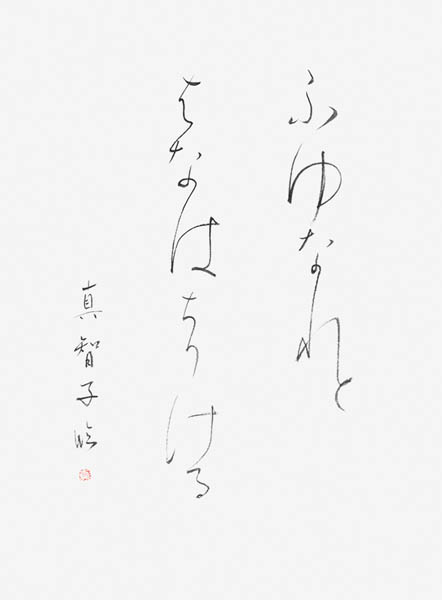 ふゆなれと
はなはちりける
真智子臨